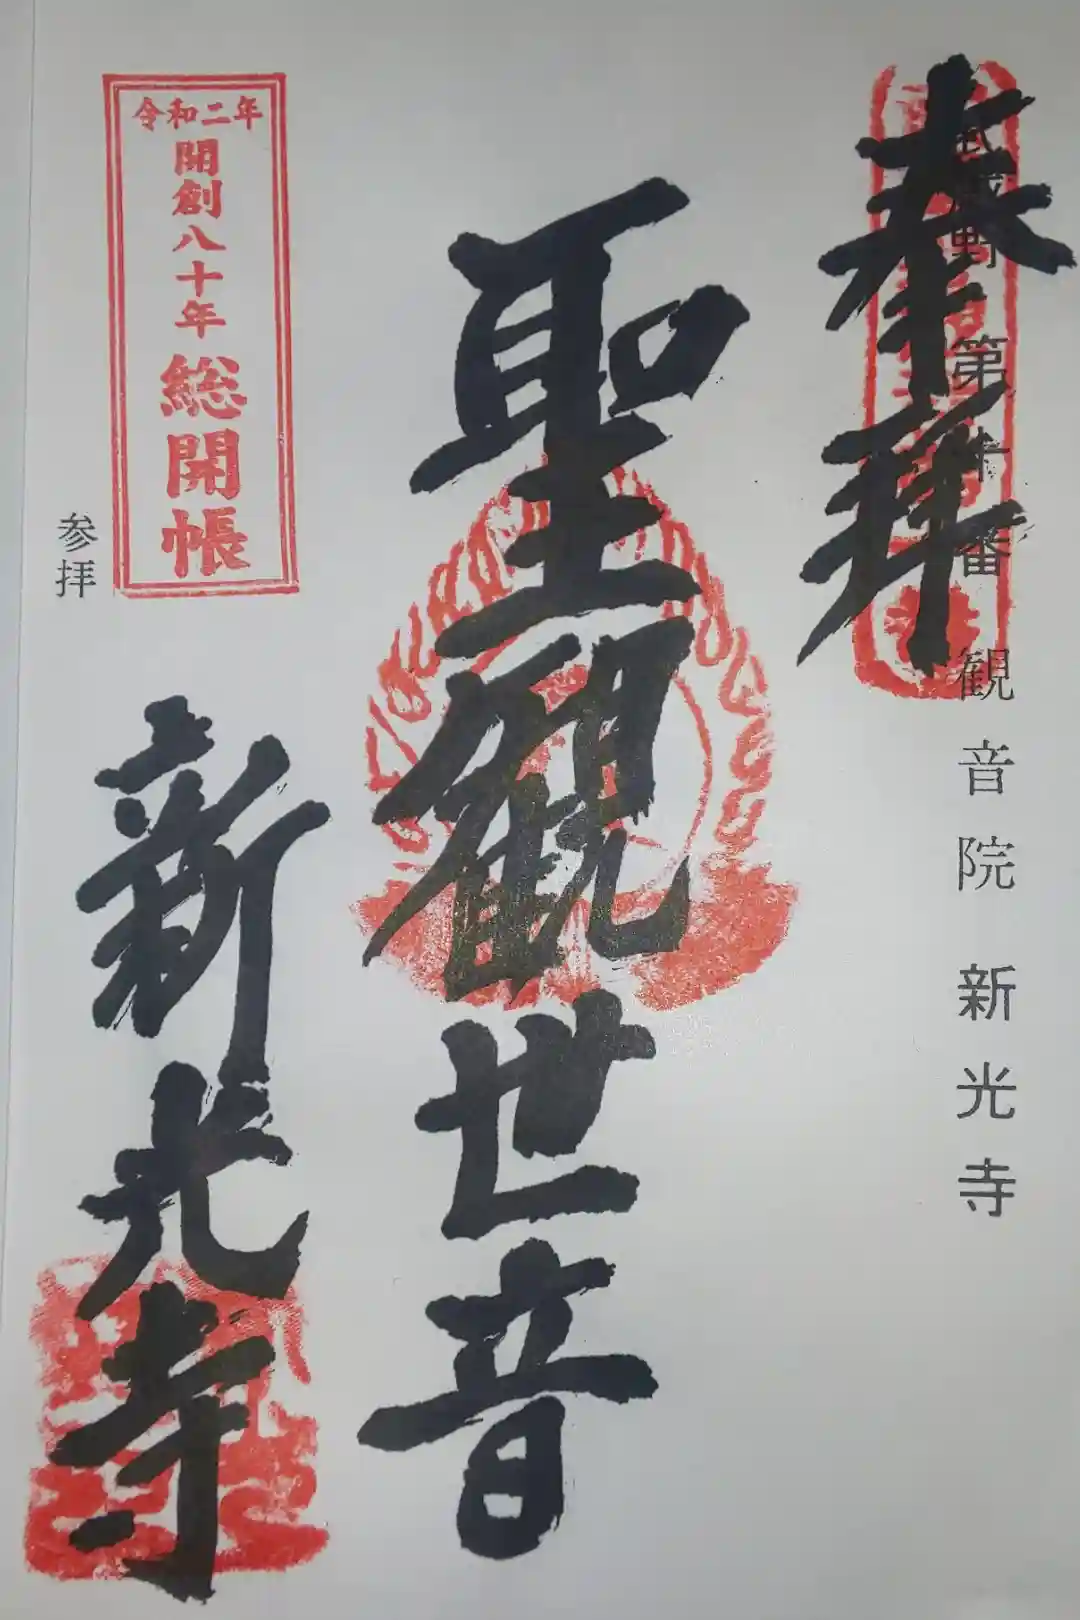 奉拝
武蔵野 第十番 観音院 新光寺
聖観世音
令和二年
開創八十年 総開帳
参拝
新光寺